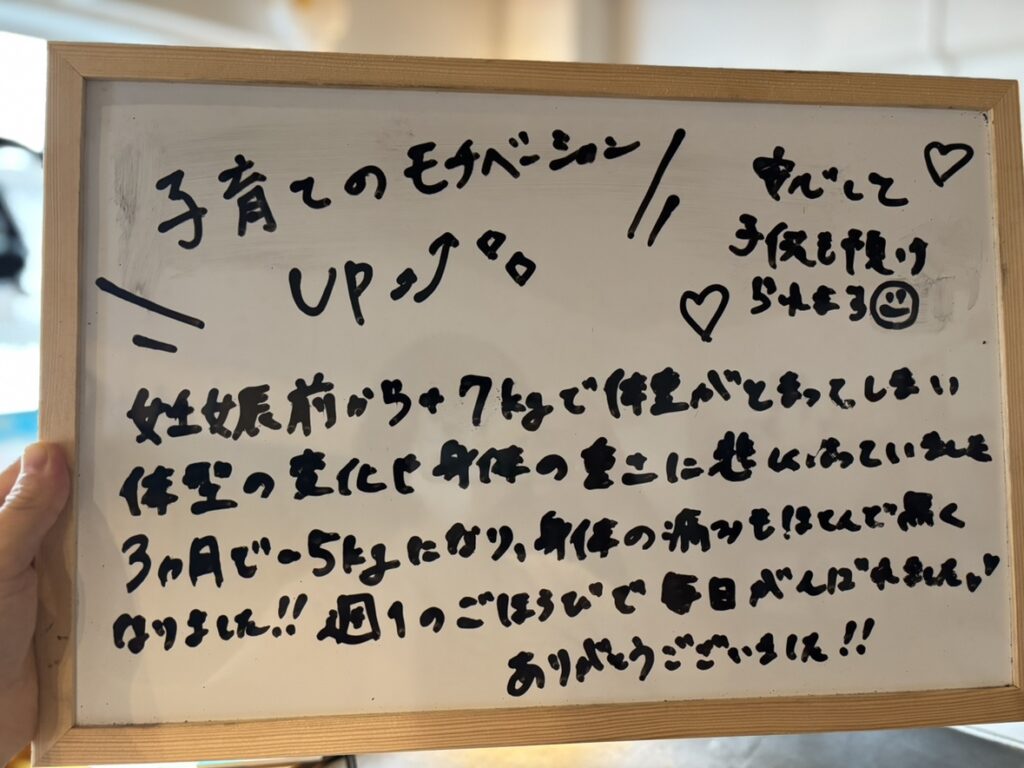 子育てのモチベーション
UP
して
子供も預け
られまる
妊娠前から+7kgで体重がとまってしまい
体型の変化や身体の重さに悲しくなっていました
3ヵ月で-5kgになり、身体の痛みもほとんど無く
なりました!! 週1のごほうびで毎日がんばれました
ありがとうございました!!